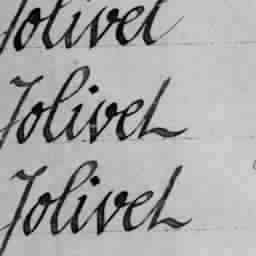 Jolivet
Jolivet
Jolivet